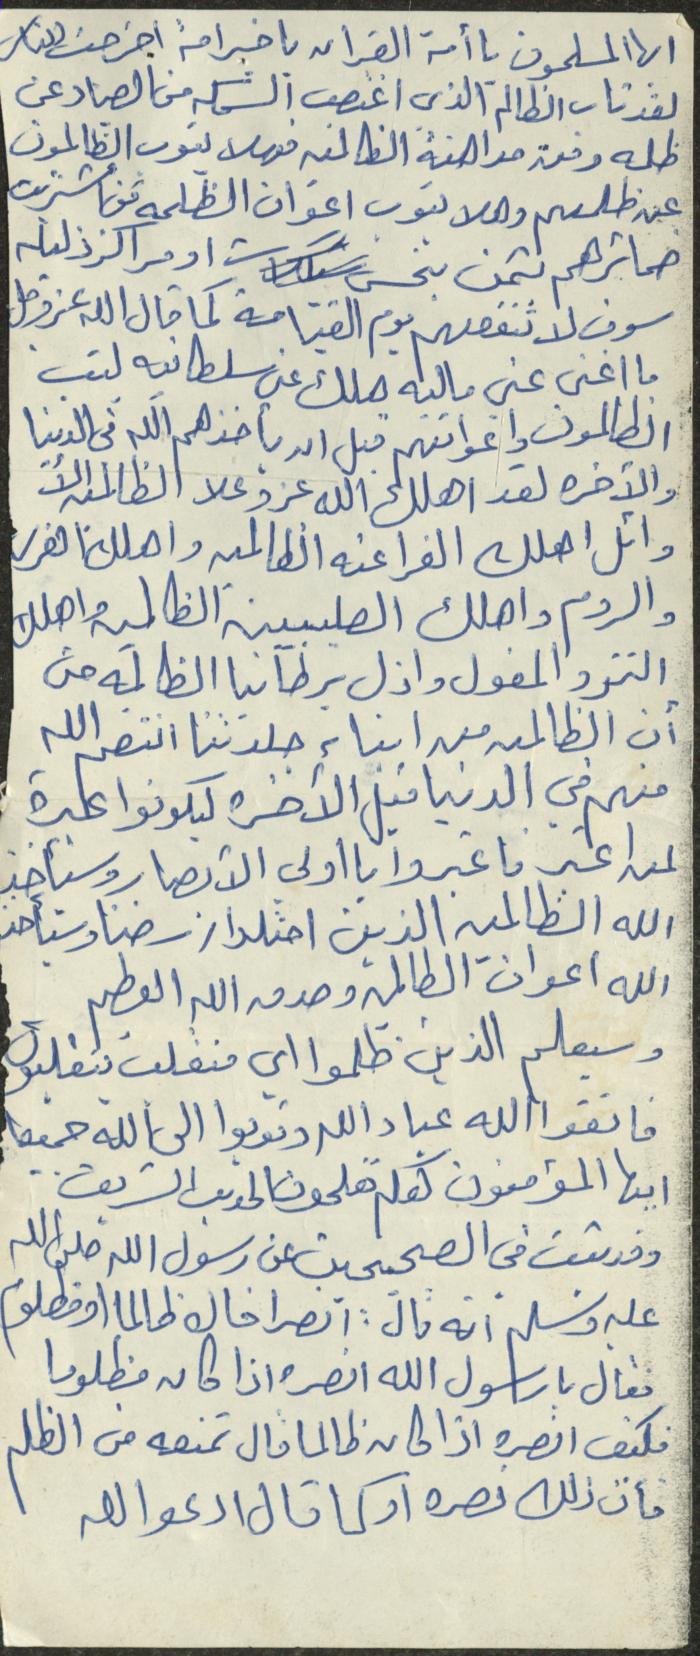 ايها المسلمون يا أمة القرآن يا خير امة اخرجت للناس
لقد تاب الظالم الذي اغتصب السمكه من الصياد عن
ظلمه وقدم مداهنة الظالمين فهلا يتوب الظالمون
عن ظلمهم وهلا يتوب اعوان الظلمه
ضمائرهم بثمن بخس او مراكز ذليله
سوف لا تنفعهم يوم القيامة كما قال الله عز وجل
ما اغنى عني ماليه هلك عني سلطانيه ليتب
الظالمون واعوانهم قبل ان يأخذهم الله في الدنيا
والآخره لقد اهلك الله عز وعلا الظالمين
اهلك الفراعنه الظالمين واهلك الفرس
والروم واهلك الصليبيين الظالمين واهلك
التتر والمغول واذل بريطانيا الظالمه حتى
أن الظالمين من ابناء جلدتنا انتقم الله
منهم في الدنيا قبل الآخره ليكونوا عبرة
لمن اعتبر فاعتبروا يا أولي الأبصار وسيأخذ
الله الظالمين الذين احتلوا ارضنا وسيأخذ
الله اعوان الظالمين وصدق الله العظيم
وسيعلم الذين ظلموا اي منقلب ينقلبون
فاتقوا الله عباد الله وتوبوا الى الله جميعا
ايها المؤمنون لعلكم تفلحون الحديث الشريف
وقد ثبت في الصحيحين عن رسول الله صلى الله
عليه وسلم أنه قال : انصر اخاك ظالما او مظلوما
فقال يا رسول الله انصره اذا كان مظلوما
فكيف انصره اذا كان ظالما قال تمنعه من الظلم
فان ذلك نصره او كما قال ادعوا الله